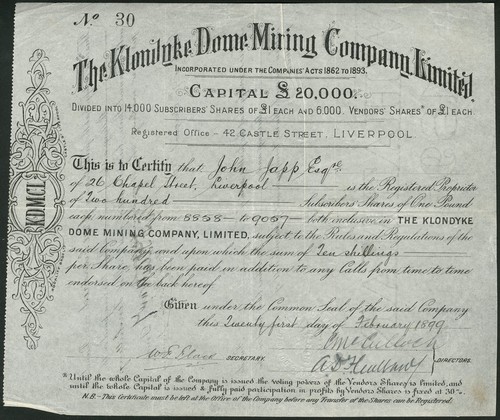 No. 30
The Klondyke Dome Mining Company, Limited.
INCORPORATED UNDER THE COMPANIES' ACTS 1862 TO 1893.
CAPITAL £20,000.
DIVIDED INTO 14,000 SUBSCRIBERS' SHARES OF £1 EACH AND 6,000 VENDORS' SHARES* OF £1 EACH
Registered Office - 42 CASTLE STREET, LIVERPOOL.
KDMCL
This is to Certify that John Japp Esqre
of 26 Chapel Street, Liverpool is the Registered Proprietor
of Two hundred Subscribers Shares of One Pound
each numbered from 8858 to 9057 both inclusive in THE KLONDYKE
DOME MINING COMPANY, LIMITED, subject to the Rules and Regulations of the
said Company and upon which the sum of Ten shillings
per Share has been paid in addition to any Calls from time to time
endorsed on the back hereof
Given under the Common Seal of the said Company
this Twenty first day of February 1899
SECRETARY.
DIRECTORS.
*Until the whole Capital of the Company is issued the voting powers of the Vendors Shares is limited, and
until the whole Capital is issued & fully paid participation in profits by Vendors Shares is fixed at 30%.
N.B. - This Certificate must be left at the Office of the Company before any Transfer of the Shares can be Registered.